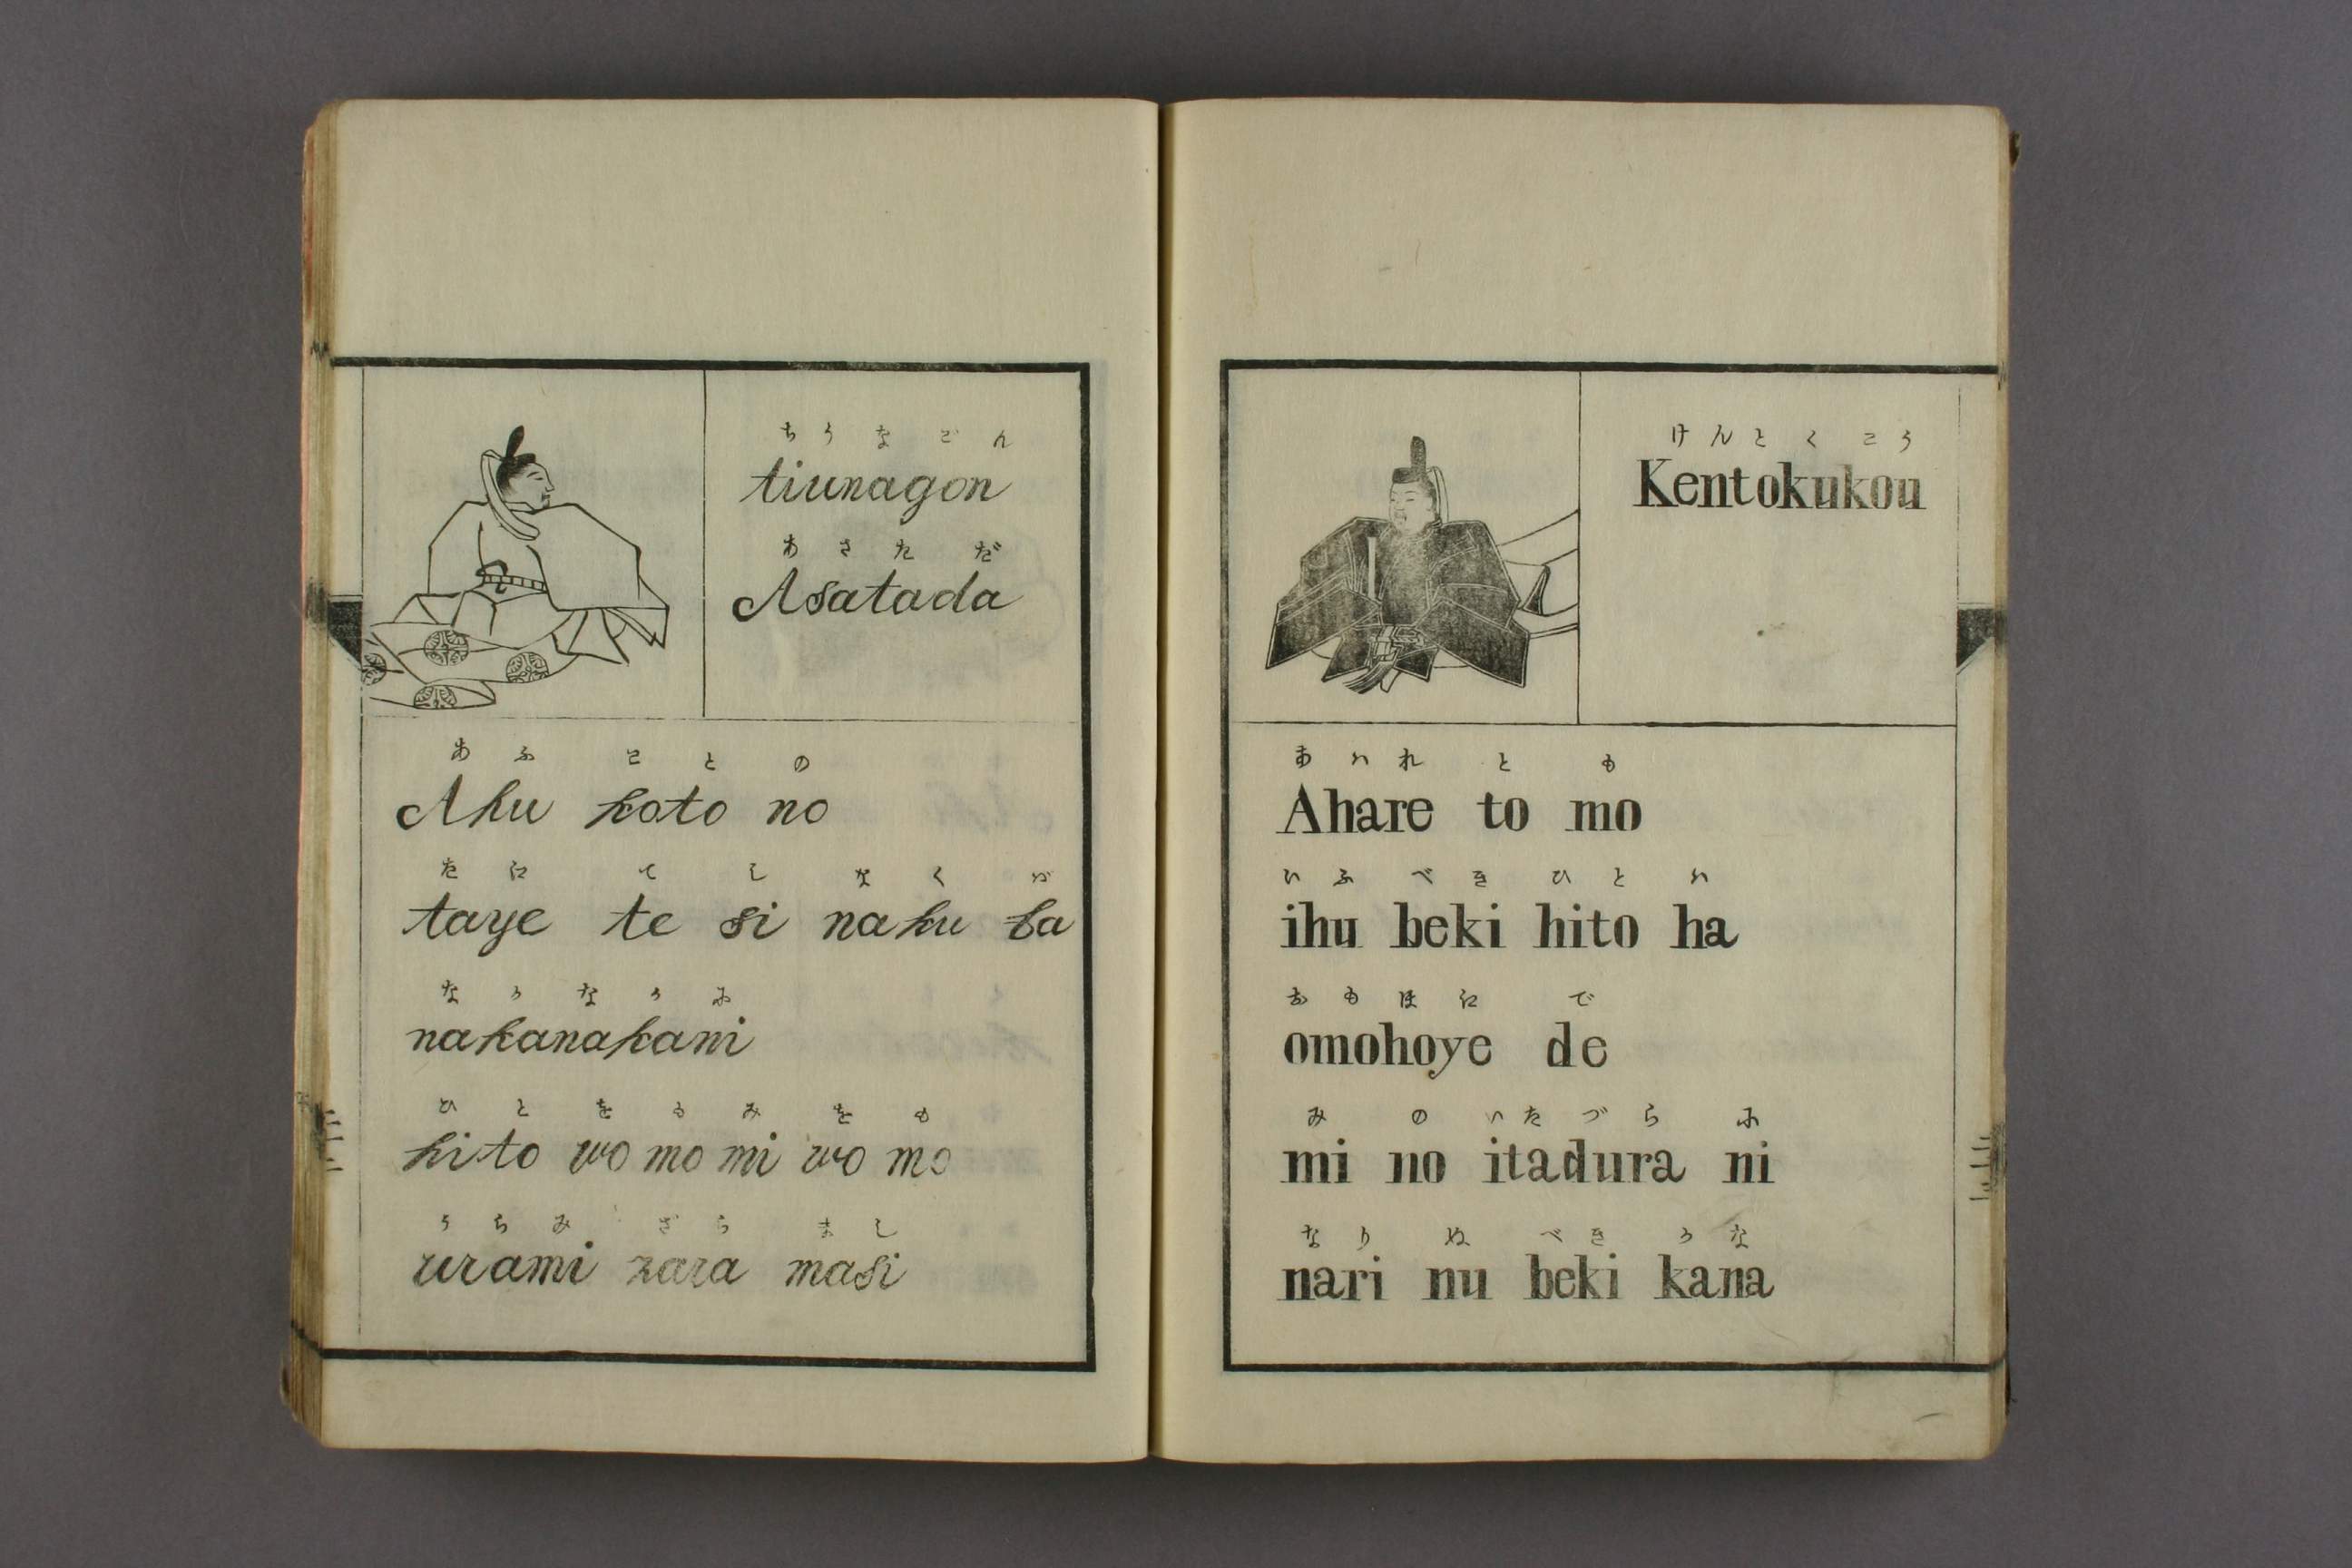 ちうなごん
tiunagon
あさただ
Asatada
あふことの
Ahu koto no
たえてしなくば
taye te si naku ba
なかなかに
nakanakani
ひとをもみをも
hito wo mo mi wo mo
うらみざらまし
urami zara masi
けんとくこう
Kentokukou
あはれとも
Ahare to mo
いふべきひとは
ihu beki hito ha
おもほえで
omohoye de
みのいたづらに
mi no itadura ni
なりぬべきかな
nari nu beki kana